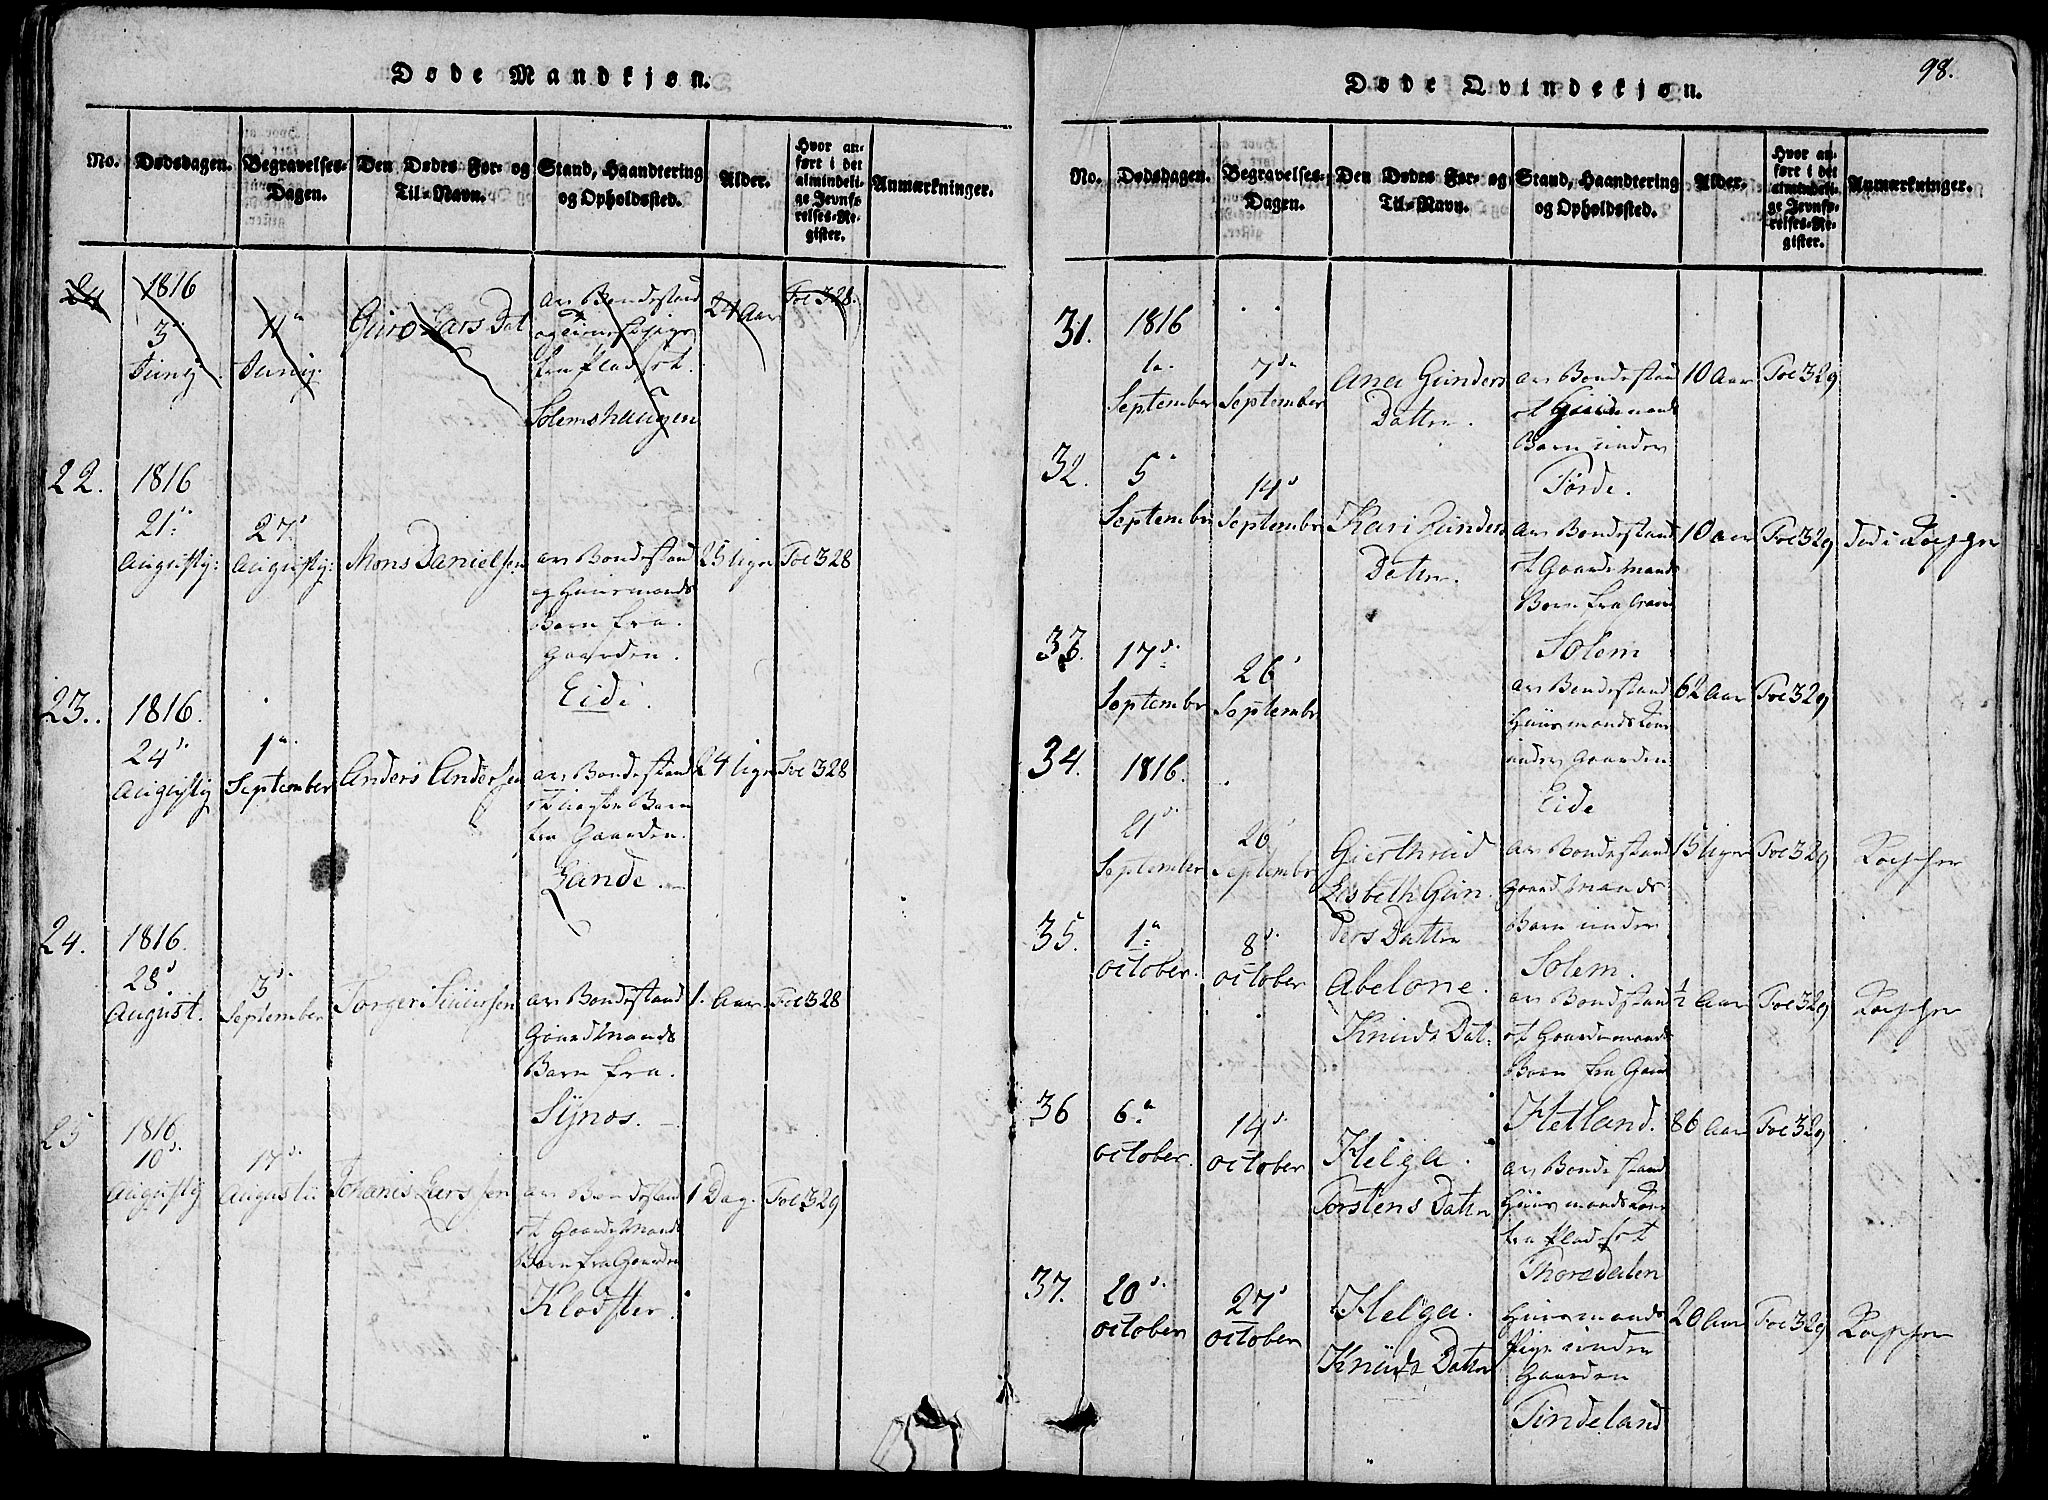 Døde Mandkjøn.
No.
Dødsdagen.
Begravelses-
Dagen.
Den Dødes For- og
Til-Navn.
Stand, Haandtering
og Opholdssted.
Alder.
Hvor an-
ført i det
almindeli-
ge Jevnfø-
relses-Re-
gister.
Anmærkninger.
1816
3
Junij
11
Junij
Guro Lars Dat
24 Aar
Foe 328
Solemshaugen
22.
1816
21
Augustij
27
Augustij
Mons Danielsen
av Bondestand
og Huusmands
Barn fra
Gaarden.
Eide.
Foe 328
23.
1816.
24
Augustij
1
September
Anders Andersen
av Bondestand
Barn
fra Gaarden.
Lande.
24
Foe 328
24.
1816.
28
August.
3
September
Torger
av Bondestand
Gaardmands
Barn fra
Synos.
1. Aar
Foe 328
25
1816
10
Augustij
17
Augusti
Johanis Lars sen
av Bondestand
Gaardemands
Barn fra Gaarden
Klodster.
1 Dag.
Foe 329
98.
Døde Qvindekjøn.
No.
Dødsdagen.
Begravelses-
Dagen.
Den Dødes For- og
Til-Navn.
Stand, Haandtering
og Opholdssted.
Alder.
Hvor an-
ført i det
almindeli-
ge Jevnfø-
relses-Re-
gister.
Anmærkninger.
31.
1816
1
September
7
September
Ana Gunders
Datter.
av Bondestand
Barn under
Førde.
10 Aar
Foe 329
32.
5
September
14
September
Kari Gunders
Datter.
av Bondestand
Gaardemands
Barn fra
Solem
10 Aar
Foe 329
33.
17
September
26
September
av Bondestand
Huusmands
under Gaarden
Eide
62 Aar
Foe 329
34.
1816.
21
September
26
September
Gierthrud
Lisbeth Gun
ders Datter
av Bondestand
Gaardmands
Barn under
Solem.
15
Foe 329
35.
1
October.
8
October
Abelone.
Knuds Dat:
av Bondestand
Gaardemands
Barn fra
Hetland.
½ Aar
Foe 329
36
6
October.
14
October
Helga.
Torstens Datter
av Bondestand
Huusmands
fra
Thorsdalen
86 Aar
Foe 329
37.
20
October
27
October
Helga.
Knuds Datter
Huusmands
Pige under
Gaarden
Tindeland
20 Aar
Foe 329